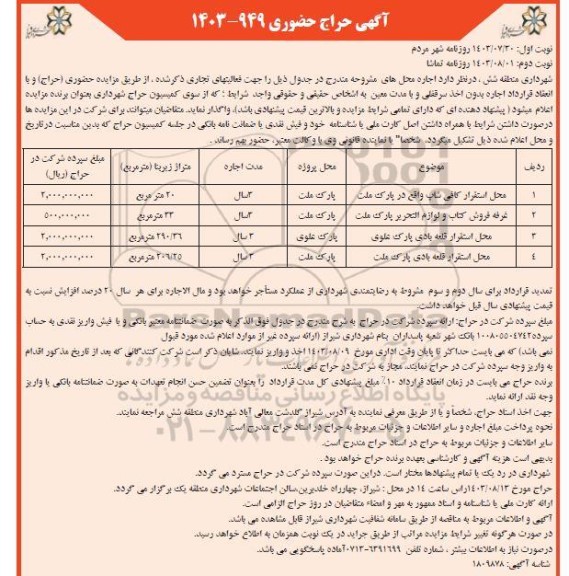 آگهی حراج حضوری ۹۴۹-۱۴۰۳
نوبت اول: ۱۴۰۳/۰۷/۳۰ روزنامه شهر مردم
نوبت دوم: ۱۴۰۳/۰۸/۰۱ روزنامه تماشا
شهرداری منطقه شش ، درنظر دارد اجاره محل های مشروحه مندرج در جدول ذیل را جهت فعالیتهای تجاری ذکرشده ، از طریق مزایده حضوری (حراج) و با
انعقاد قرارداد اجاره بدون اخذ سرقفلی و با مدت معین به اشخاص حقیقی و حقوقی واجد شرایط ؛ که از سوی کمیسیون حراج شهرداری بعنوان برنده مزایده
اعلام میشود ( پیشنهاد دهنده ای که دارای تمامی شرایط مزایده و بالاترین قیمت پیشنهادی باشد)، واگذار نماید. متقاضیان میتوانند، برای شرکت در این مزایده ها
درصورت داشتن شرایط با همراه داشتن اصل کارت ملی یا شناسنامه خود و فیش نقدی یا ضمانت نامه بانکی در جلسه کمیسیون حراج که بدین مناسبت در تاریخ
و محل اعلام شده ذیل تشکیل میگردد، شخصا" یا نماینده قانونی وی با وکالت معتبر، حضور بهم رساند .
ردیف موضوع محل پروژه مدت اجاره متراژ زیربنا (مترمربع) مبلغ سپرده شرکت در حراج (ریال)
۱ محل استقرار کافی شاپ واقع در پارک ملت پارک ملت ۳سال ۲۰ متر مربع ۲,۰۰۰,۰۰۰,۰۰۰
۲ غرفه فروش کتاب و لوازم التحریر پارک ملت پارک ملت ۳سال ۳۳ مترمربع ۵۰۰,۰۰۰,۰۰۰
۳ محل استقرار قلعه بادی پارک علوی پارک علوی ۳ سال ۲۹۰/۳۶ مترمربع ۲,۰۰۰,۰۰۰,۰۰۰
۴ محل استقرار قلعه بادی پارک ملت پارک ملت ۳ سال ۲۰۶/۲۵ مترمربع ۲,۰۰۰,۰۰۰,۰۰۰
تمدید قرارداد برای سال دوم و سوم مشروط به رضایتمندی شهرداری از عملکرد مستأجر خواهد بود و مال الاجاره برای هر سال ۲۰ درصد افزایش نسبت به
قیمت پیشنهادی سال قبل خواهد داشت.
مبلغ سپرده شرکت در حراج: ارائه سپرده شرکت در حراج به شرح مندرج در جدول فوق الذکر به صورت ضمانتنامه معتبر بانکی و یا فیش واریز نقدی به حساب
سپرده ۱۰۰۸۰۵۵۰۴۷۴۲ بانک شهر شعبه پاسداران بنام شهرداری شیراز (ارائه سپرده غیر از موارد اعلام شده مورد قبول
نمی باشد) که می بایست حداکثر تا پایان وقت اداری مورخ ۱۴۰۳/۰۸/۰۹ اخذ و واریز نمایند. شایان ذکر است شرکت کنندگانی که بعد از تاریخ مذکور اقدام
به واریز وجه سپرده شرکت در حراج نمایند، مجاز به شرکت در حراج نمی باشند.
برنده حراج می بایست در زمان انعقاد قرارداد ۱۰٪ مبلغ پیشنهادی کل مدت قرارداد را بعنوان تضمین حسن انجام تعهدات به صورت ضمانتنامه بانکی یا واریز
وجه نقد ارائه نماید.
جهت اخذ اسناد حراج، شخصاً و یا از طریق معرفی نماینده به آدرس شیراز گلدشت معالی آباد شهرداری منطقه شش مراجعه نمایند.
نحوه پرداخت مبلغ اجاره و سایر اطلاعات و جزئیات مربوط به حراج در اسناد حراج مندرج است.
سایر اطلاعات و جزئیات مربوط به حراج در اسناد حراج مندرج است.
بدیهی است هزینه آگهی و کارشناسی بعهده برنده حراج خواهد بود .
شهرداری در رد یک یا تمام پیشنهادها مختار است. دراین صورت سپرده شرکت در حراج مسترد می گردد.
حراج مورخ ۱۴۰۳/۰۸/۱۳ راس ساعت ۱۴ در محل : شیراز، چهارراه خلدبرین، سالن اجتماعات شهرداری منطقه یک برگزار می گردد.
ارائه کارت ملی یا شناسنامه و اسناد ممهور به مهر و امضاء متقاضیان در روز حراج الزامی است.
آگهی و اطلاعات مربوط به مناقصه از طریق سامانه شفافیت شهرداری شیراز قابل مشاهده می باشد.
در صورت هرگونه تغییر شرایط مزایده مراتب از طریق جراید در یک نوبت همزمان به اطلاع خواهد رسید.
درصورت نیاز به اطلاعات بیشتر ، شماره تلفن ۰۷۱۳-۶۳۹۱۶۹۹ آماده پاسخگویی می باشد.
شناسه آگهی: ۱۸۰۹۸۷۸